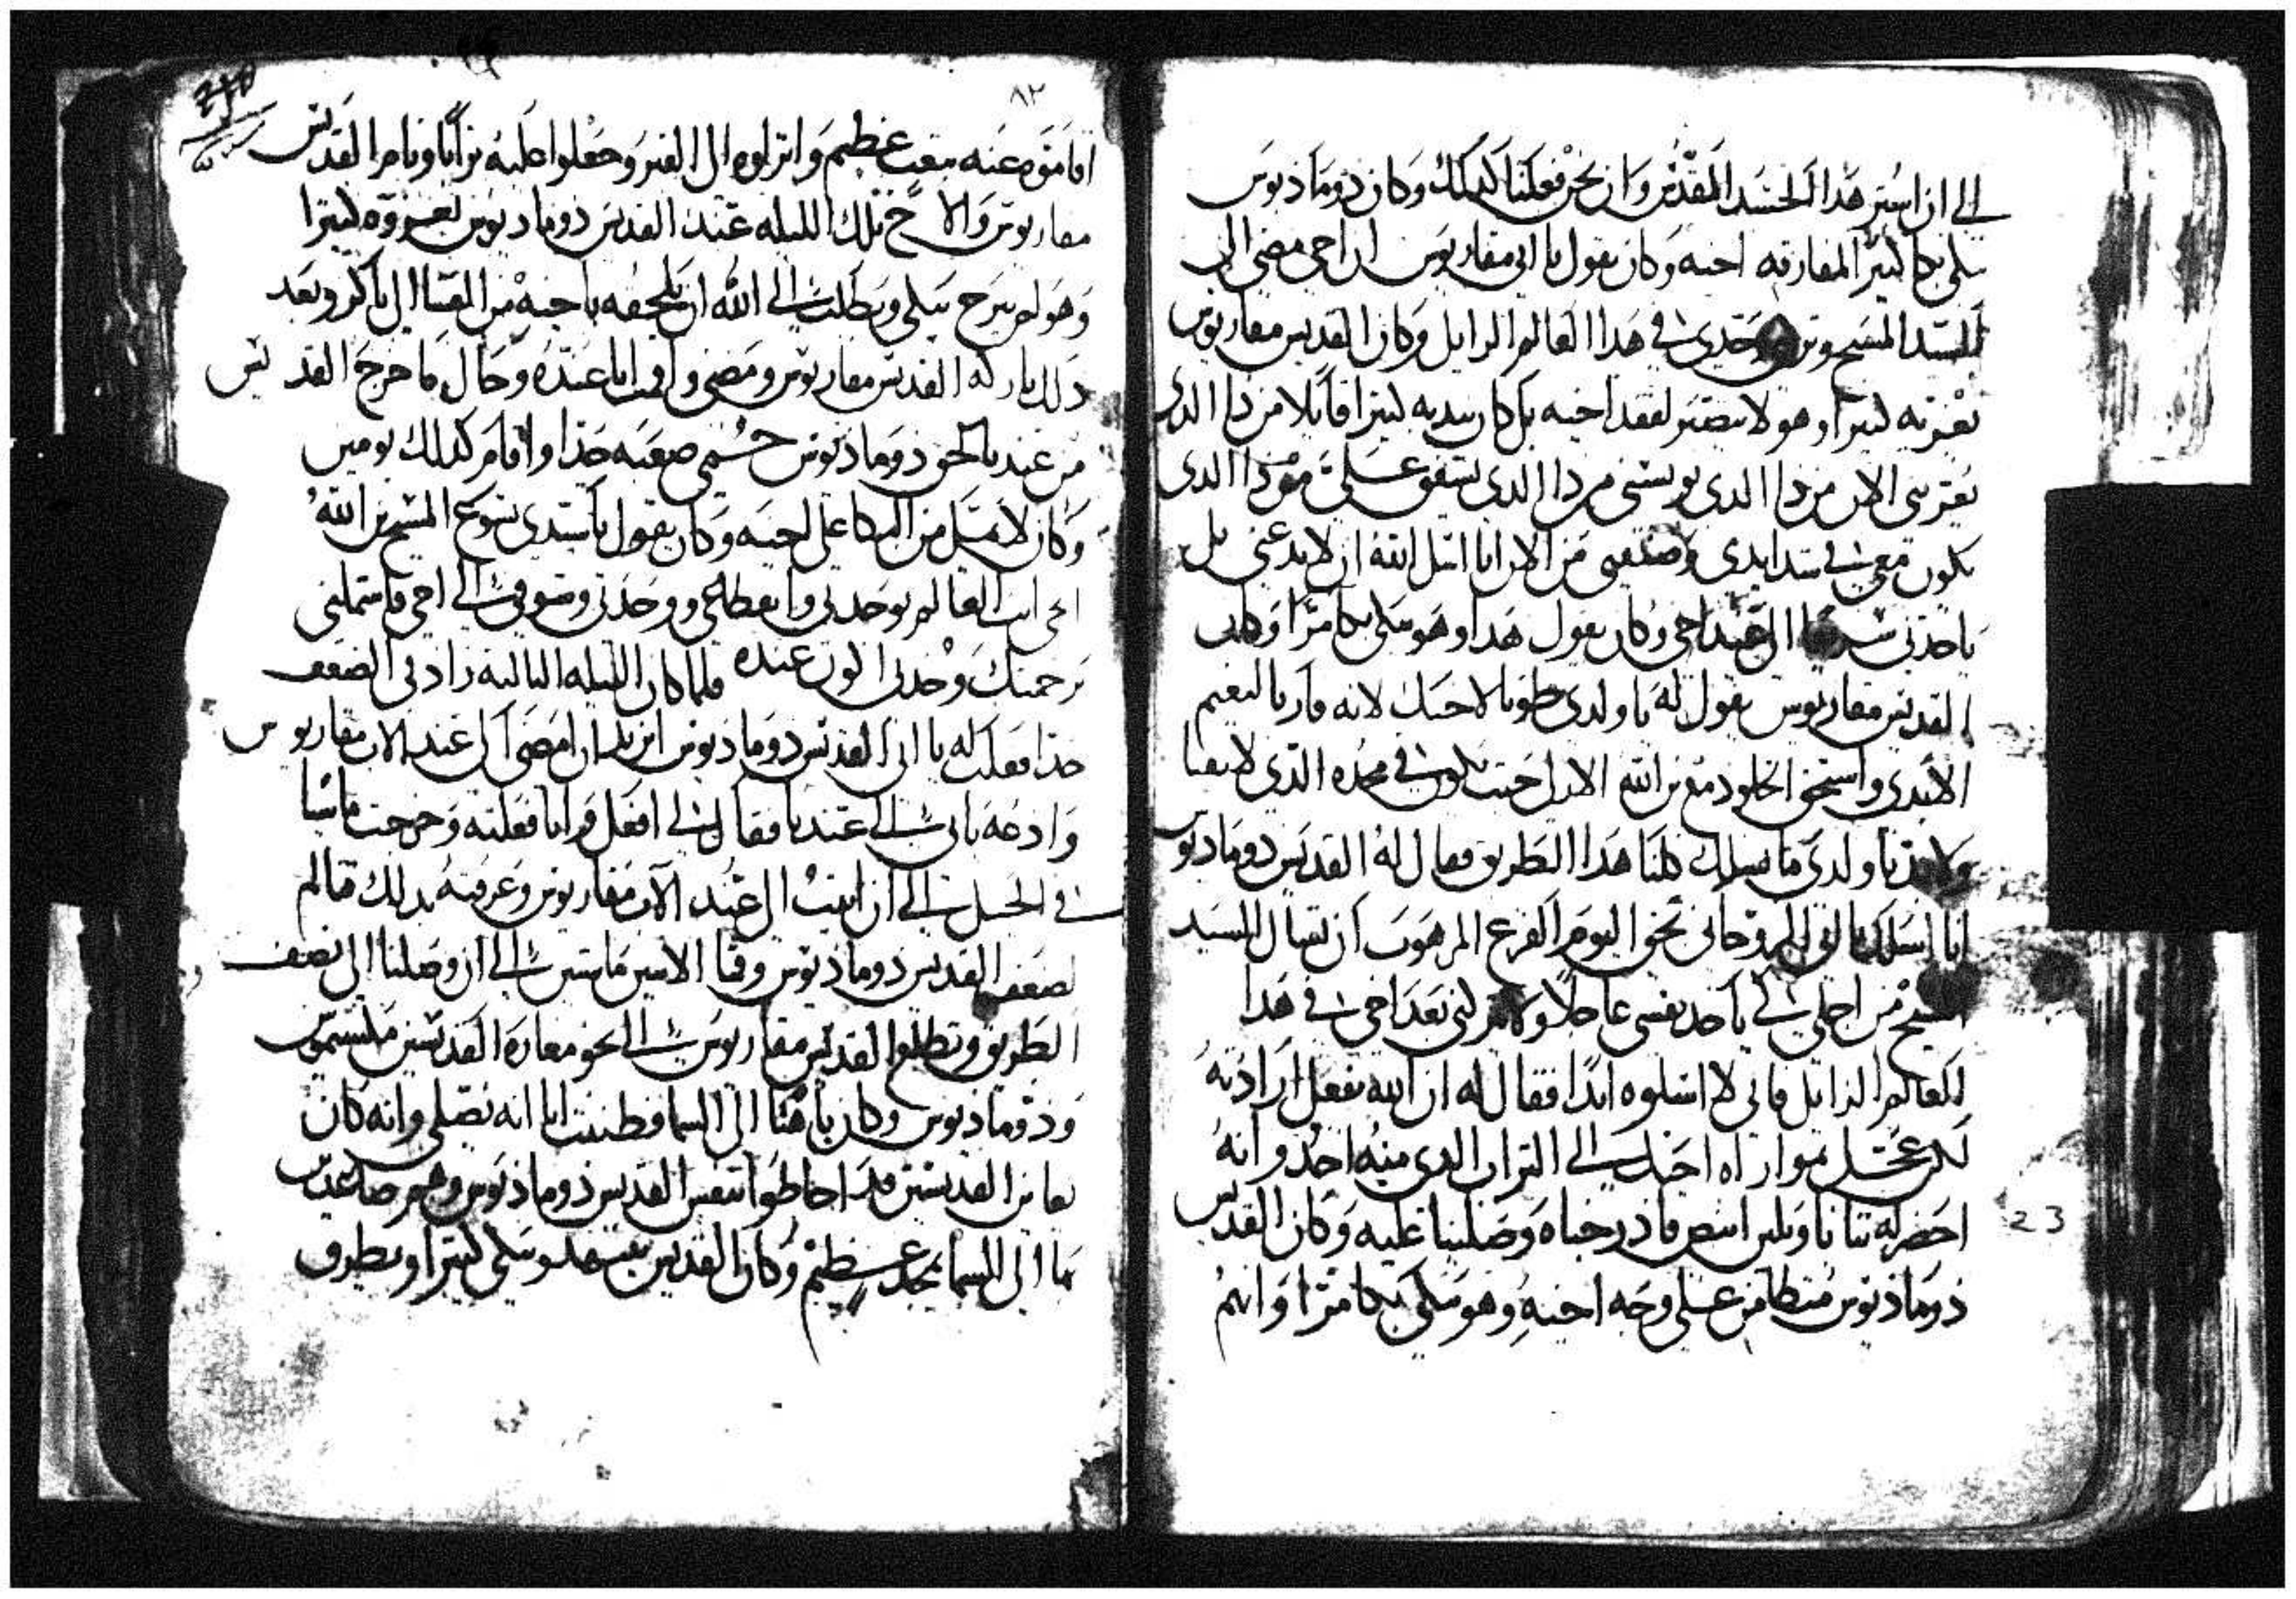 الي ان استر هدا الجسد المقدس وان نحن فعلنا كدلك وكان دوماديوس
يبكي بكا كتيرا لمفارقه اخيه وكان يقول يا ابي مقاريوس ان اخي مضي الي
السيد المسيح وتركني وحدي في هدا العالم الزايل وكان القديس مقاريوس
يعزيه كتيرا وهو لا يصبر لفقد اخيه بل كان يندبه كتيرا قايلا من دا الدي
يعزيني الان من دا الدي يونسني من دا الدي يشفق علي من دا الدي
يكون معي في شدايدي وضعفي من الان انا اسل الله ان لا يدعني بل
ياخدني سريعا الي عند اخي وكان يقول هدا وهو يبكي بكا مرا وكان
القديس مقاريوس يقول له يا ولدي طوبا لاخيك لانه فاز بالنعيم
الابدي واستحق الخلود مع بن الله الازل حيت يكون في مجده الذي لا يفنا
ولابد يا ولدي ما نسلك كلنا هدا الطريق فقال له القديس دوماديوس
انا اسلك يا ابي الروحاني بحق اليوم الفزع المرهوب ان تسال السيد
المسيح من اجلي لكي ياخد نفسي عاجلا ولا يتركني بعد اخي في هدا
العالم الزايل فاني لا اسلوه ابدا فقال له ان الله يفعل ارادته
لكن عجل بموارااه اخيك الي التراب الدي منه اخد وانه
احضر له تيابا وبلين ابيض فادرجناه وصلينا عليه وكان القديس
دوماديوس منطامن علي وجه اخيه وهو يبكي بكا مرا وانهم
٨٢
اقاموه عنه بتعب عظيم وانزلوه الي القبر وجعلوا عليه ترابا ونام القديس
مقاريوس والاخ تلك الليله عند القديس دوماديوس يعزوه كتيرا
وهو لم يبرح يبكي ويطلب الي الله ان يلحقه باخيه من المسا الي باكر وبعد
دلك باركه القديس مقاريوس ومضي واقمت انا عنده وحال ما خرج القديس
من عندنا لحق دوماديوس حمي صعبه جدا واقام كدلك يومين
وكان لا يمل من البكا علي اخيه وكان يقول يا سيدي يسوع المسيح بن الله
الحي انت العالم بوحدتي وانقطاعي ووحدتي وشوقي الي اخي فاشملني
برحمتك وخدني اكون عنده فلما كان الليله التالته زاد في الضعف
جدا فقلت له يا ابي القديس دوماديوس اتريد ان امضي الي عند الاب مقاريوس
وادعه ياتي الي عندنا فقال لي افعل فوانا فعلته وخرجت ماشيا
في الجبل الي ان اتيت الي عند الاب مقاريوس وعرفته بدلك قالم
لضعف القديس دوماديوس وقمنا الاتنين ماشيين الي ان وصلنا الي نصف
الطريق وتطلع القديس مقاريوس الي نحو مغارة القديسين مكسيموس
ودوماديوس وكان باهتا الي السما فظننت انا انه يصلي وانه كان
يعاين القديسين قد احاطوا بنفس القديس دوماديوس وهم صاعدين
بها الي السما بمجد عظيم وكان القديس يتنهد ويبكي كتيرا ويطرق
23